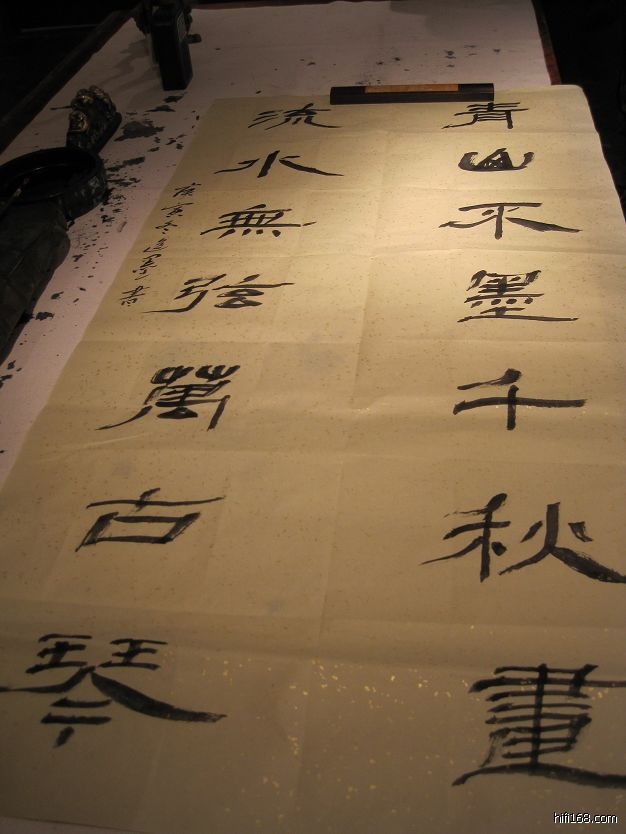 青山不墨千秋畫
流水無弦萬古琴
庚寅冬 書
hifi168.com